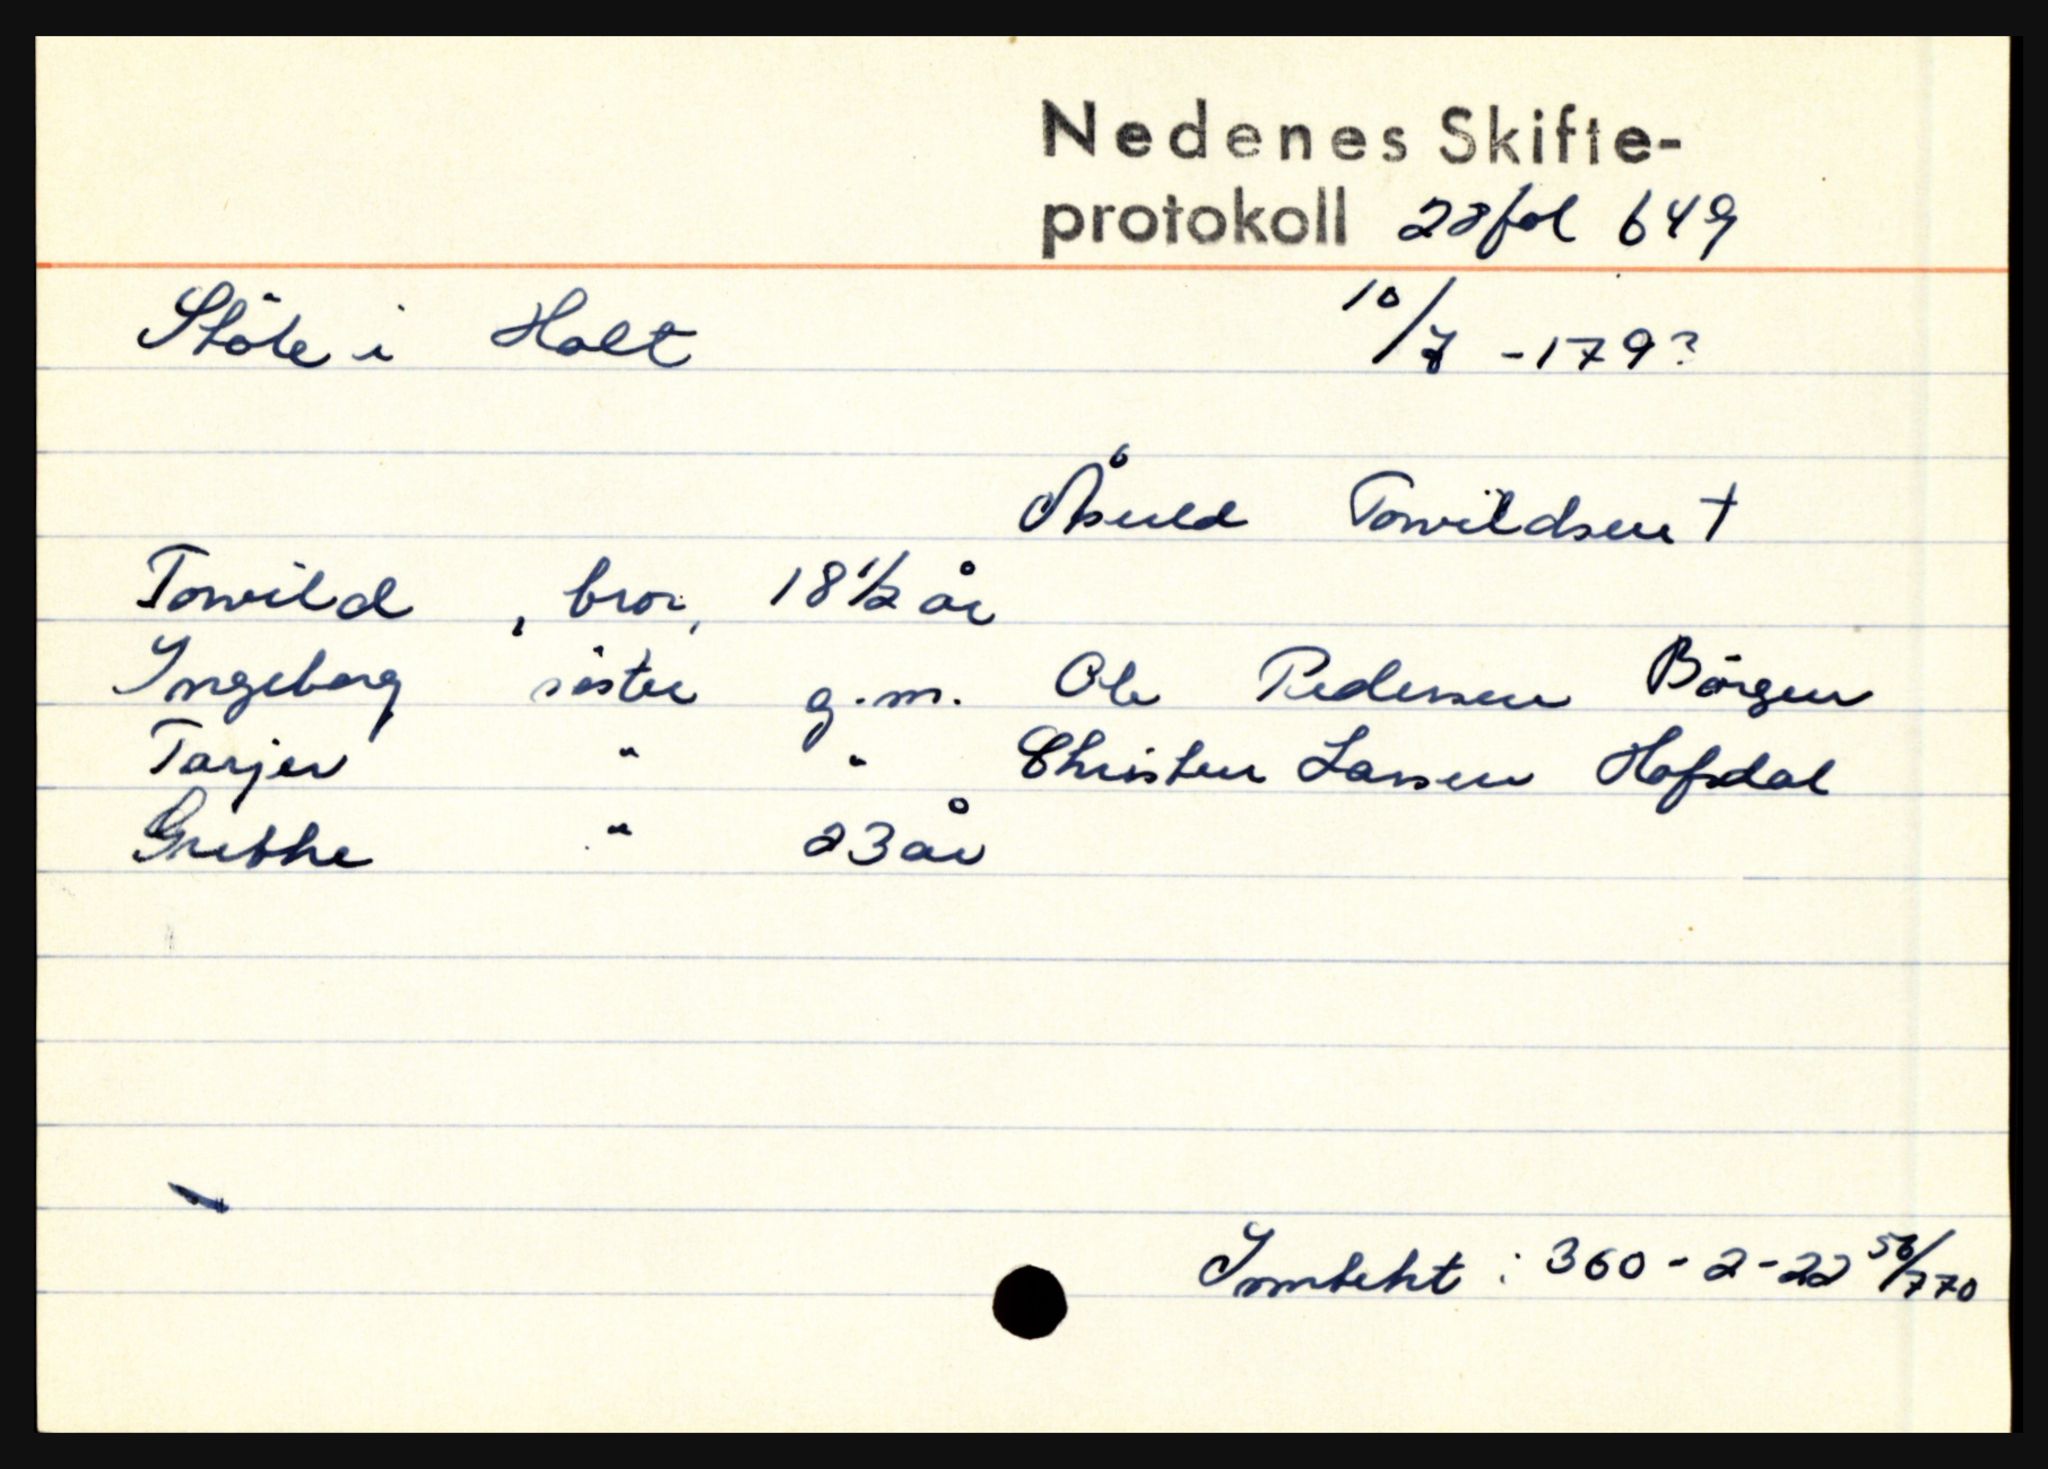 Nedenes Skifte-
protokoll 28 fol 649
Støle i Holt 10/7 - 179?
Åsuld Torvildsen †
Torvild, bror, 18 1/2 år
Ingeborg søster g.m. Ole Pedersen Børgen
Tarjer " " Christen Larsen Hofsdal
Grethe " 23 år
Inntekt : 360 - 2 - 22 56/770